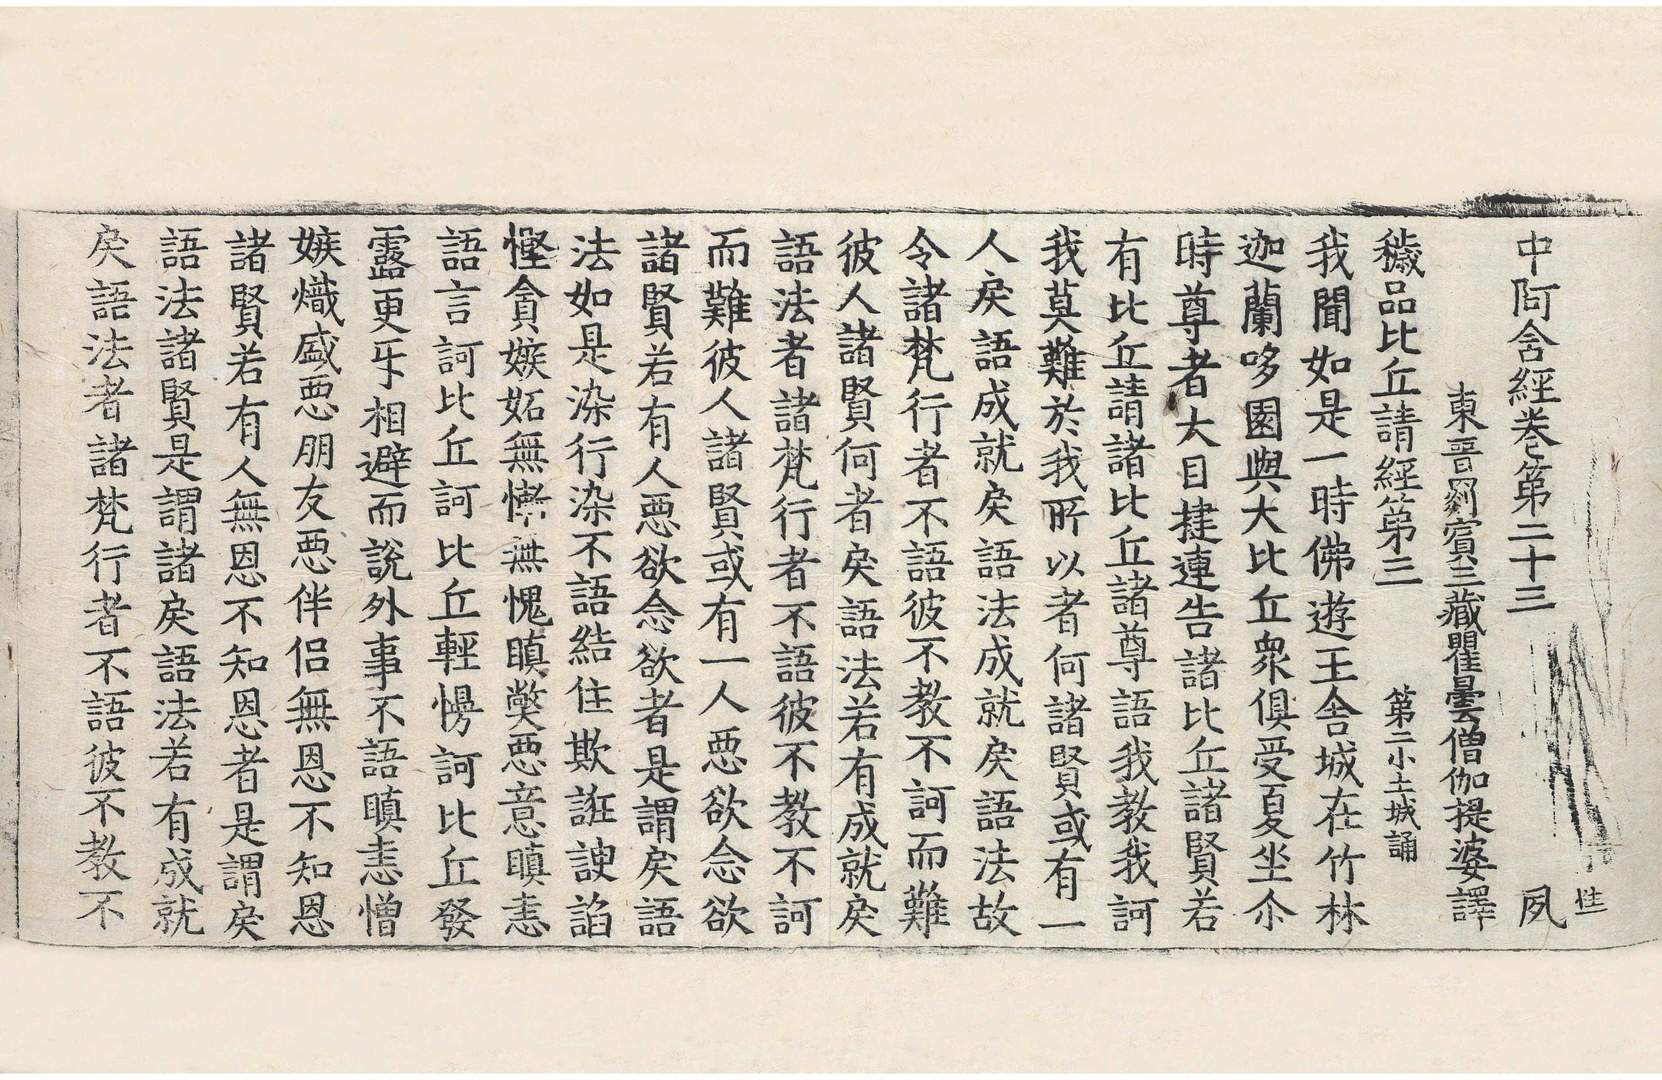 中阿含經卷第二十三 夙
東晉罽賓三藏瞿曇僧伽提婆譯
穢品比丘請經第三 第二小土城誦
我聞如是一時佛遊王舍城在竹林
迦蘭哆園與大比丘衆俱受夏坐尒
時尊者大目揵連告諸比丘諸賢若
有比丘請諸比丘諸尊語我教我訶
我莫難於我所以者何諸賢或有一
人戾語成就戾語法成就戾語法故
令諸梵行者不語彼不教不訶而難
彼人諸賢何者戾語法若有成就戾
語法者諸梵行者不語彼不教不訶
而難彼人諸賢或有一人悪欲念欲
諸賢若有人悪欲念欲者是謂戾語
法如是染行染不語結住欺誑諛諂
慳貪嫉妬無慚無愧瞋弊悪意瞋恚
語言訶比丘訶比丘輕慢訶比丘發
露更互相避而說外事不語瞋恚憎
嫉熾盛悪朋友悪伴侶無恩不知恩
諸賢若有人無恩不知恩者是謂戾
語法諸賢是謂諸戾語法若有成就
戾語法者諸梵行者不語彼不教不